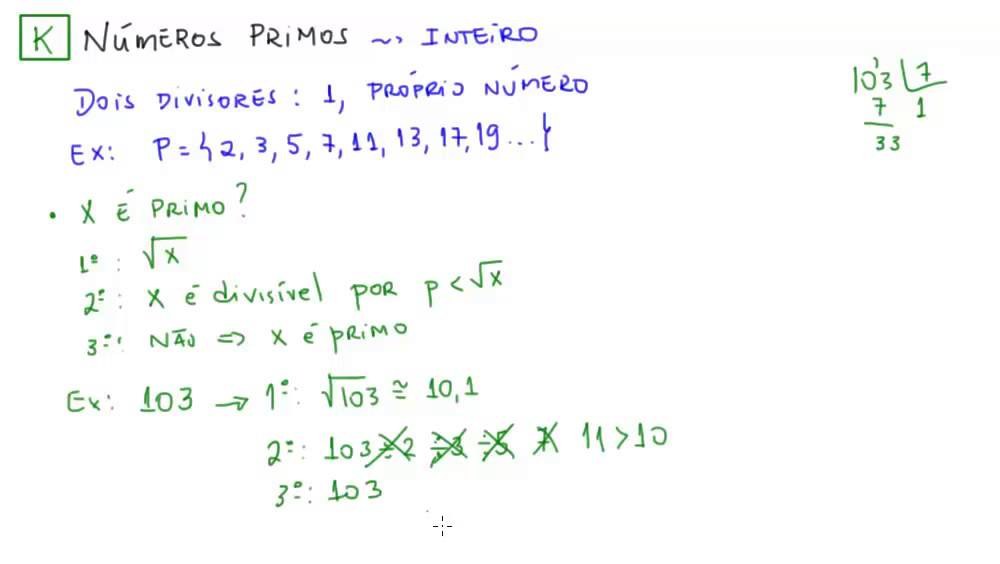 K NÚMEROS PRIMOS ~> INTEIRO
DOIS DIVISORES: 1, PRÓPRIO NÚMERO
EX: P = { 2, 3, 5, 7, 11, 13, 17, 19 ... }
103 | 7
7 1
33
• X É PRIMO?
1º: √x
2º: X é divisível por p < √x
3º: NÃO => X É PRIMO
Ex: 103 → 1º: √103 ≅ 10,1
2º: 103 ÷2 ÷3 ÷5 7 11 > 10
3º: 103